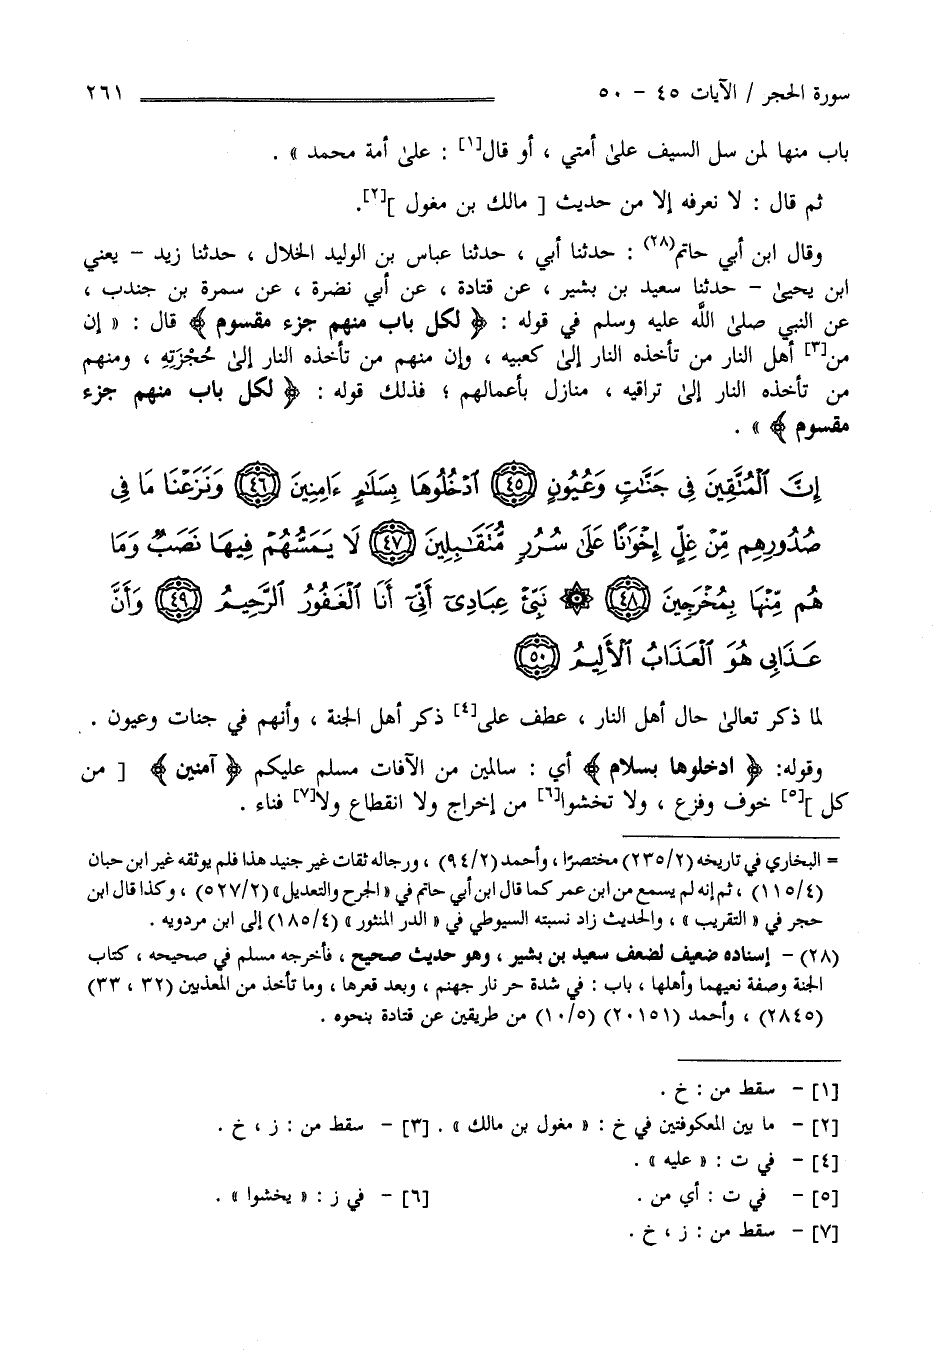 سورة الحجر / الآيات ٤٥ – ٥٠ ٢٦١
باب منها لمن سل السيف على أمتي ، أو قال[١] : على أمة محمد » .
ثم قال : لا نعرفه إلا من حديث [ مالك بن مغول ][٢].
وقال ابن أبي حاتم(٢٨) : حدثنا أبي ، حدثنا عباس بن الوليد الخلال ، حدثنا زيد – يعني
ابن يحيى – حدثنا سعيد بن بشير ، عن قتادة ، عن أبي نضرة ، عن سمرة بن جندب ،
عن النبي صلى اللَّه عليه وسلم في قوله : ﴿ لكل باب منهم جزء مقسوم ﴾ قال : « إن
من[٣] أهل النار من تأخذه النار إلى كعبيه ، وإن منهم من تأخذه النار إلى حُجْزَتِهِ ، ومنهم
من تأخذه النار إلى تراقيه ، منازل بأعمالهم ؛ فذلك قوله : ﴿ لكل باب منهم جزء
مقسوم ﴾ » .
إِنَّ ٱلْمُتَّقِينَ فِي جَنَّٰتٍ وَعُيُونٍ ٤٥ ٱدْخُلُوهَا بِسَلَٰمٍ ءَامِنِينَ ٤٦ وَنَزَعْنَا مَا فِي
صُدُورِهِم مِّنْ غِلٍّ إِخْوَٰنًا عَلَىٰ سُرُرٍ مُّتَقَٰبِلِينَ ٤٧ لَا يَمَسُّهُمْ فِيهَا نَصَبٌ وَمَا
هُم مِّنْهَا بِمُخْرَجِينَ ٤٨ ۞ نَبِّئْ عِبَادِيٓ أَنِّيٓ أَنَا ٱلْغَفُورُ ٱلرَّحِيمُ ٤٩ وَأَنَّ
عَذَابِي هُوَ ٱلْعَذَابُ ٱلْأَلِيمُ ٥٠
لما ذكر تعالى حال أهل النار ، عطف على[٤] ذكر أهل الجنة ، وأنهم في جنات وعيون .
وقوله: ﴿ ادخلوها بسلام ﴾ أي : سالمين من الآفات مسلم عليكم ﴿ آمنين ﴾ [ من
كل ][٥] خوف وفزع ، ولا تخشوا[٦] من إخراج ولا انقطاع ولا[٧] فناء .
= البخاري في تاريخه (٢٣٥/٢) مختصرًا ، وأحمد (٩٤/٢) ، ورجاله ثقات غير جنيد هذا فلم يوثقه غير ابن حبان
(١١٥/٤) ، ثم إنه لم يسمع من ابن عمر كما قال ابن أبي حاتم في « الجرح والتعديل» (٥٢٧/٢) ، وكذا قال ابن
حجر في « التقريب » ، والحديث زاد نسبته السيوطي في « الدر المنثور » (١٨٥/٤) إلى ابن مردويه .
(٢٨) – إسناده ضعيف لضعف سعيد بن بشير ، وهو حديث صحيح ، فأخرجه مسلم في صحيحه ، كتاب
الجنة وصفة نعيهما وأهلها ، باب : في شدة حر نار جهنم ، وبعد قعرها ، وما تأخذ من المعذبين (٣٢ ، ٣٣)
(٢٨٤٥) ، وأحمد (٢٠١٥١) (١٠/٥) من طريقين عن قتادة بنحوه .
[١] – سقط من : خ .
[٢] – ما بين المعكوفتين في خ : « مغول بن مالك » . [٣] – سقط من : ز ، خ .
[٤] – في ت : « عليه » .
[٥] – في ت : أي من . [٦] – في ز : « يخشوا » .
[٧] – سقط من : ز ، خ .